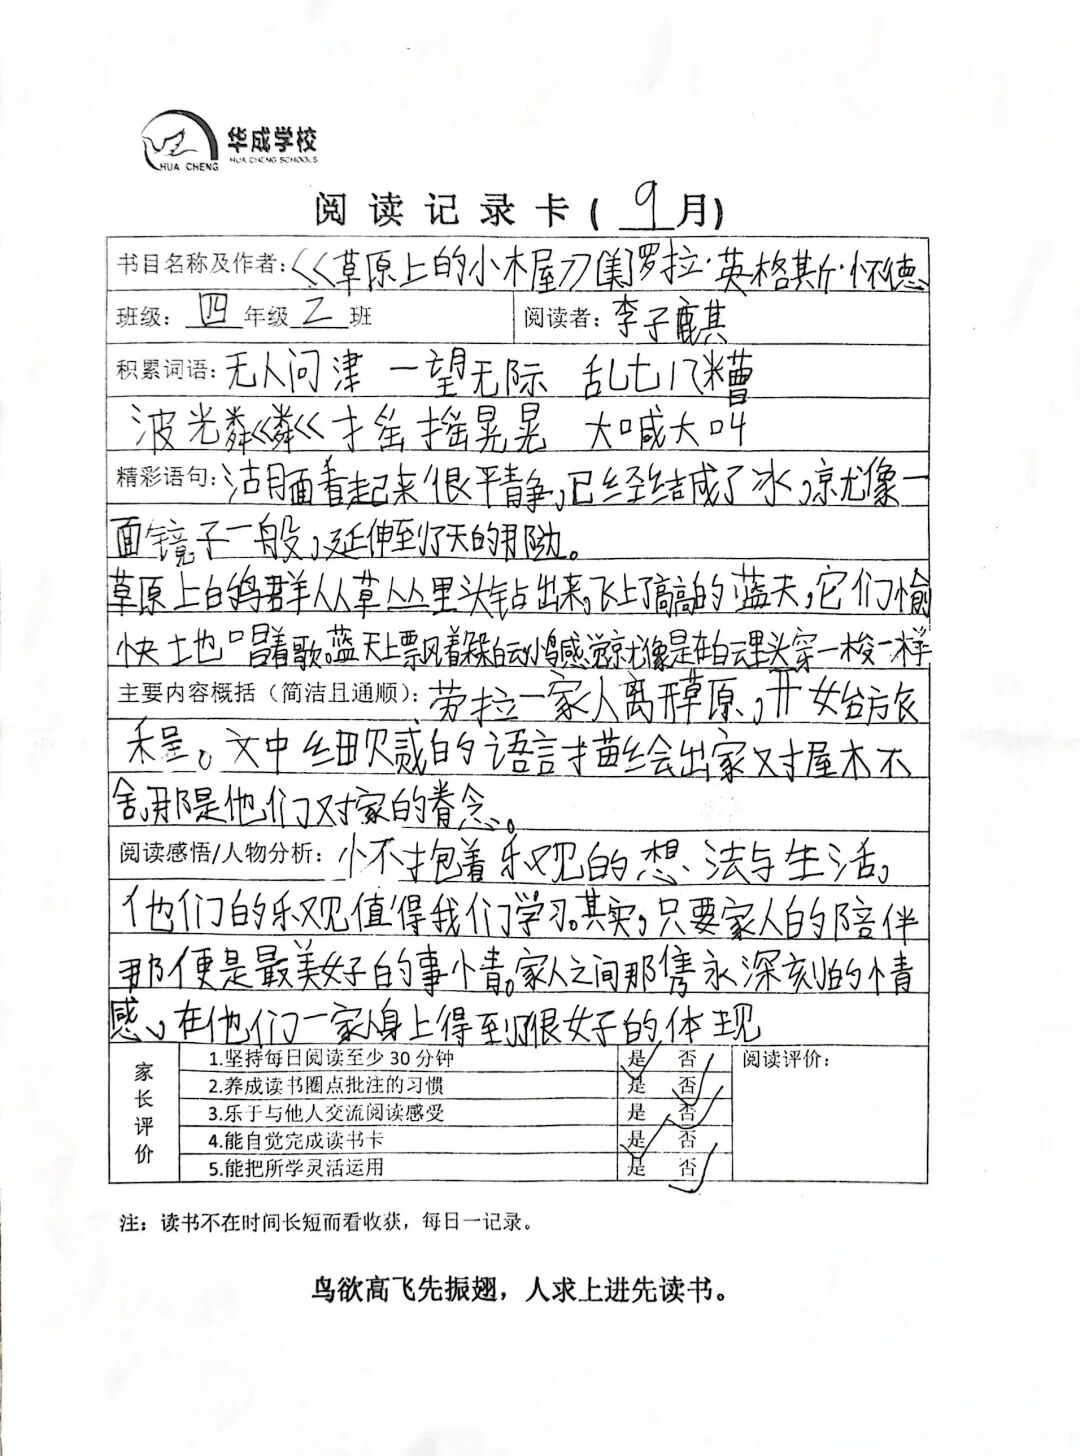 华成学校
HUA CHENG
HUA CHENG SCHOOLS
阅读记录卡(9月)
书目名称及作者:《草原上的小木屋》[美]罗拉·英格斯·怀德
班级:四年级乙班 阅读者:李子麒
积累词语:无人问津 一望无际 乱七八糟
波光粼粼 摇摇晃晃 大喊大叫
精彩语句:湖面看起来很平静,已经结成了冰,就像一
面镜子一般,延伸到了天的那边。
草原上的鸟群从草丛里头钻出来,飞上了高高的蓝天,它们愉
快地唱着歌。蓝天上飘着朵朵白云,小鸟感觉就像是在白云里头穿梭一样
主要内容概括(简洁且通顺):劳拉一家人离开草原,开始旅
程。文中细腻的语言描绘出家对屋木不
舍,那是他们对家的眷念。
阅读感悟/人物分析:怀抱着乐观的想法与生活,
他们的乐观值得我们学习。其实,只要家人的陪伴
那便是最美好的事情。家人之间那隽永深刻的情
感,在他们一家人身上得到很好的体现
家长评价
1.坚持每日阅读至少30分钟 是 否
2.养成读书圈点批注的习惯 是 否
3.乐于与他人交流阅读感受 是 否
4.能自觉完成读书卡 是 否
5.能把所学灵活运用 是 否
阅读评价:
注:读书不在时间长短而看收获,每日一记录。
鸟欲高飞先振翅,人求上进先读书。